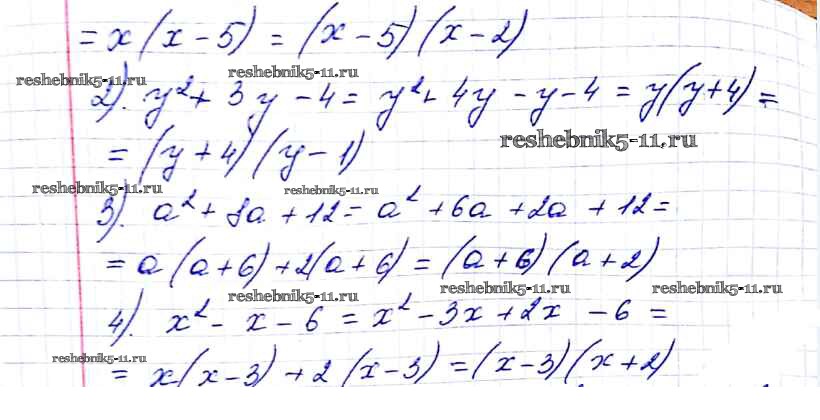 = x(x - 5) = (x - 5)(x - 2)
reshebnik5-11.ru reshebnik5-11.ru
2). y² + 3y - 4 = y² + 4y - y - 4 = y(y + 4) =
reshebnik5-11.ru
= (y + 4)(y - 1)
reshebnik5-11.ru reshebnik5-11.ru
3). a² + 8a + 12 = a² + 6a + 2a + 12 =
= a(a + 6) + 2(a + 6) = (a + 6)(a + 2)
reshebnik5-11.ru reshebnik5-11.ru reshebnik5-11.ru
4). x² - x - 6 = x² - 3x + 2x - 6 =
reshebnik5-11.ru
= x(x - 3) + 2(x - 3) = (x - 3)(x + 2)